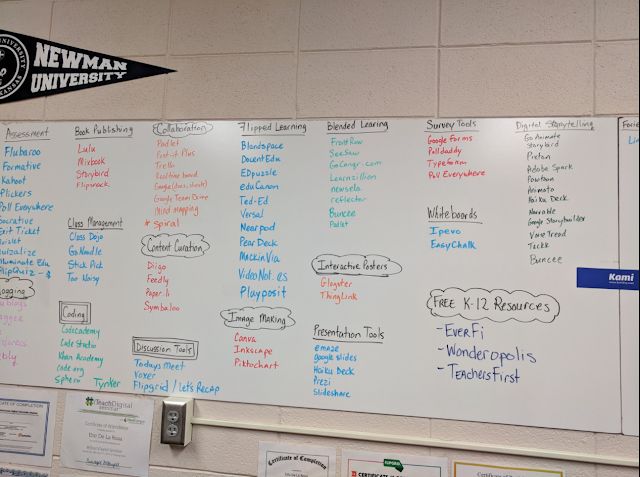 NEWMAN
UNIVERSITY
Assessment
Flubaroo
Formative
Kahoot
Plickers
Poll Everywhere
Socrative
Exit Ticket
Quizalize
Illuminate Edu
FlipQuiz - $
Book Publishing
Lulu
Mixbook
Storybird
Flipsnack
Class Management
Class Dojo
GoNoodle
Stick Pick
Too Noisy
Coding
Codecademy
Code Studio
Khan Academy
code.org
Sphero Tynker
Collaboration
Padlet
Post-it Plus
Trello
Realtime board
Google (docs, sheets)
Google Team Drive
Mind mapping
* spiral
Content Curation
Diigo
Feedly
Paper.li
Symbaloo
Discussion Tools
Todays Meet
Voxer
Flipgrid / Let's Recap
Flipped Learning
Blendspace
DocentEdu
EDpuzzle
eduCanon
Ted-Ed
Versal
Nearpod
Pear Deck
MackinVia
VideoNot.es
Playposit
Image Making
Canva
Inkscape
Piktochart
Blended Learing
FrontRow
SeeSaw
GoCongr.com
Learnzillion
newsela
reflector
Buncee
Padlet
Interactive Posters
Glogster
ThingLink
Presentation Tools
emaze
google slides
Haiku Deck
Prezi
Slideshare
Survey Tools
Google Forms
Polldaddy
Typeform
Poll Everywhere
Whiteboards
Ipevo
EasyChalk
Free K-12 Resources
- EverFi
- Wonderopolis
- TeachersFirst
Digital Storytelling
Go Animate
Storybird
Pixton
Adobe Spark
Powtoon
Animoto
Haiku Deck
Narrable
Google Storybuilder
Voice Thread
Tackk
Buncee
Kami
Certificate of Completion